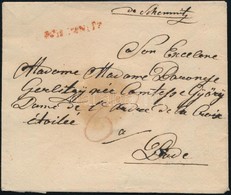 de Schemnitz
SCHEMNITZ
Son Excelence
Madame Madame Baronesse
Gerliczy née Comtesse Győry
Dame de l'Ordre de la Croix
étoilée
à
Bude